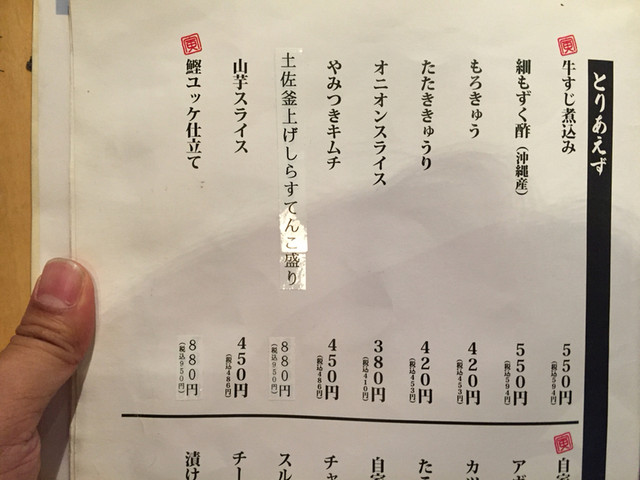 とりあえず
寅
牛すじ煮込み
550円
(税込594円)
細もずく酢(沖縄産)
550円
(税込594円)
もろきゅう
420円
(税込453円)
たたききゅうり
420円
(税込453円)
オニオンスライス
380円
(税込410円)
やみつきキムチ
450円
(税込486円)
土佐釜上げしらすてんこ盛り
880円
(税込950円)
山芋スライス
450円
(税込486円)
寅
鰹ユッケ仕立て
880円
(税込950円)
寅
自家
アボ
カツ
たこ
自家
チャ
スル
チー
漬け